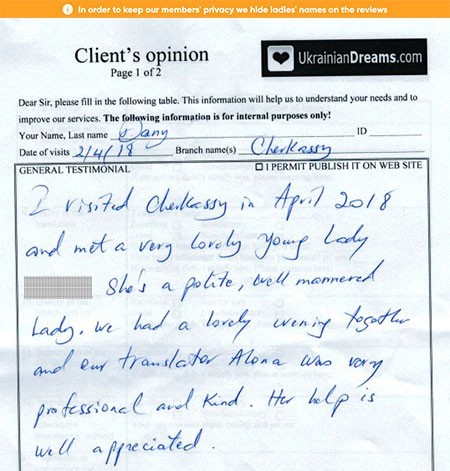 In order to keep our members' privacy we hide ladies' names on the reviews
Client's opinion
Page 1 of 2
UkrainianDreams.com
Dear Sir, please fill in the following table. This information will help us to understand your needs and to
improve our services. The following information is for internal purposes only!
Your Name, Last name Dany ID
Date of visits 2/4/18 Branch name(s) Cherkassy
GENERAL TESTIMONIAL I PERMIT PUBLISH IT ON WEB SITE
I visited Cherkassy in April 2018
and met a very lovely young Lady
She's a polite, well mannered
Lady. we had a lovely evening together
and our translator Alona was very
professional and Kind. Her help is
well appreciated.